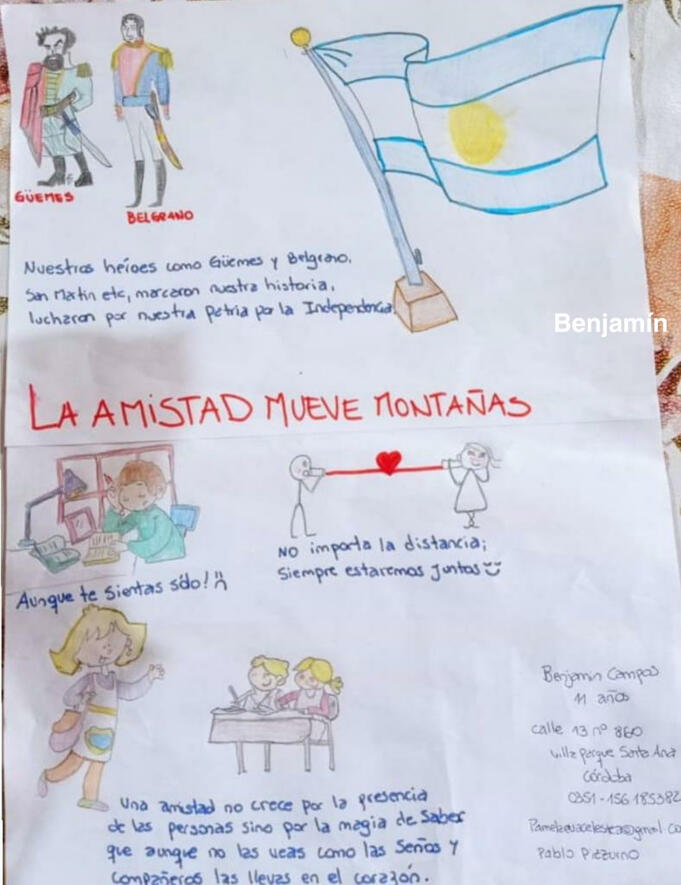 GÜEMES
BELGRANO
Nuestros héroes como Güemes y Belgrano,
San Martin etc, marcaron nuestra historia,
lucharon por nuestra patria por la Independencia.
Benjamín
LA AMISTAD MUEVE MONTAÑAS
Aunque te sientas sólo!
NO importa la distancia;
Siempre estaremos juntos
Una amistad no crece por la presencia
de las personas sino por la magia de Saber
que aunque no las veas como las Seños y
compañeros las llevas en el corazón.
Benjamin Campos
11 años
calle 13 nº 860
villa parque Santa Ana
Córdoba
0351-156 185382
Pablo Pizzurno